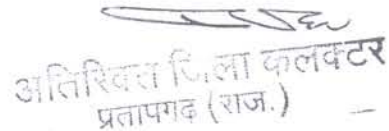 अतिरिक्त जिला कलक्टर
प्रतापगढ़ (राज.)